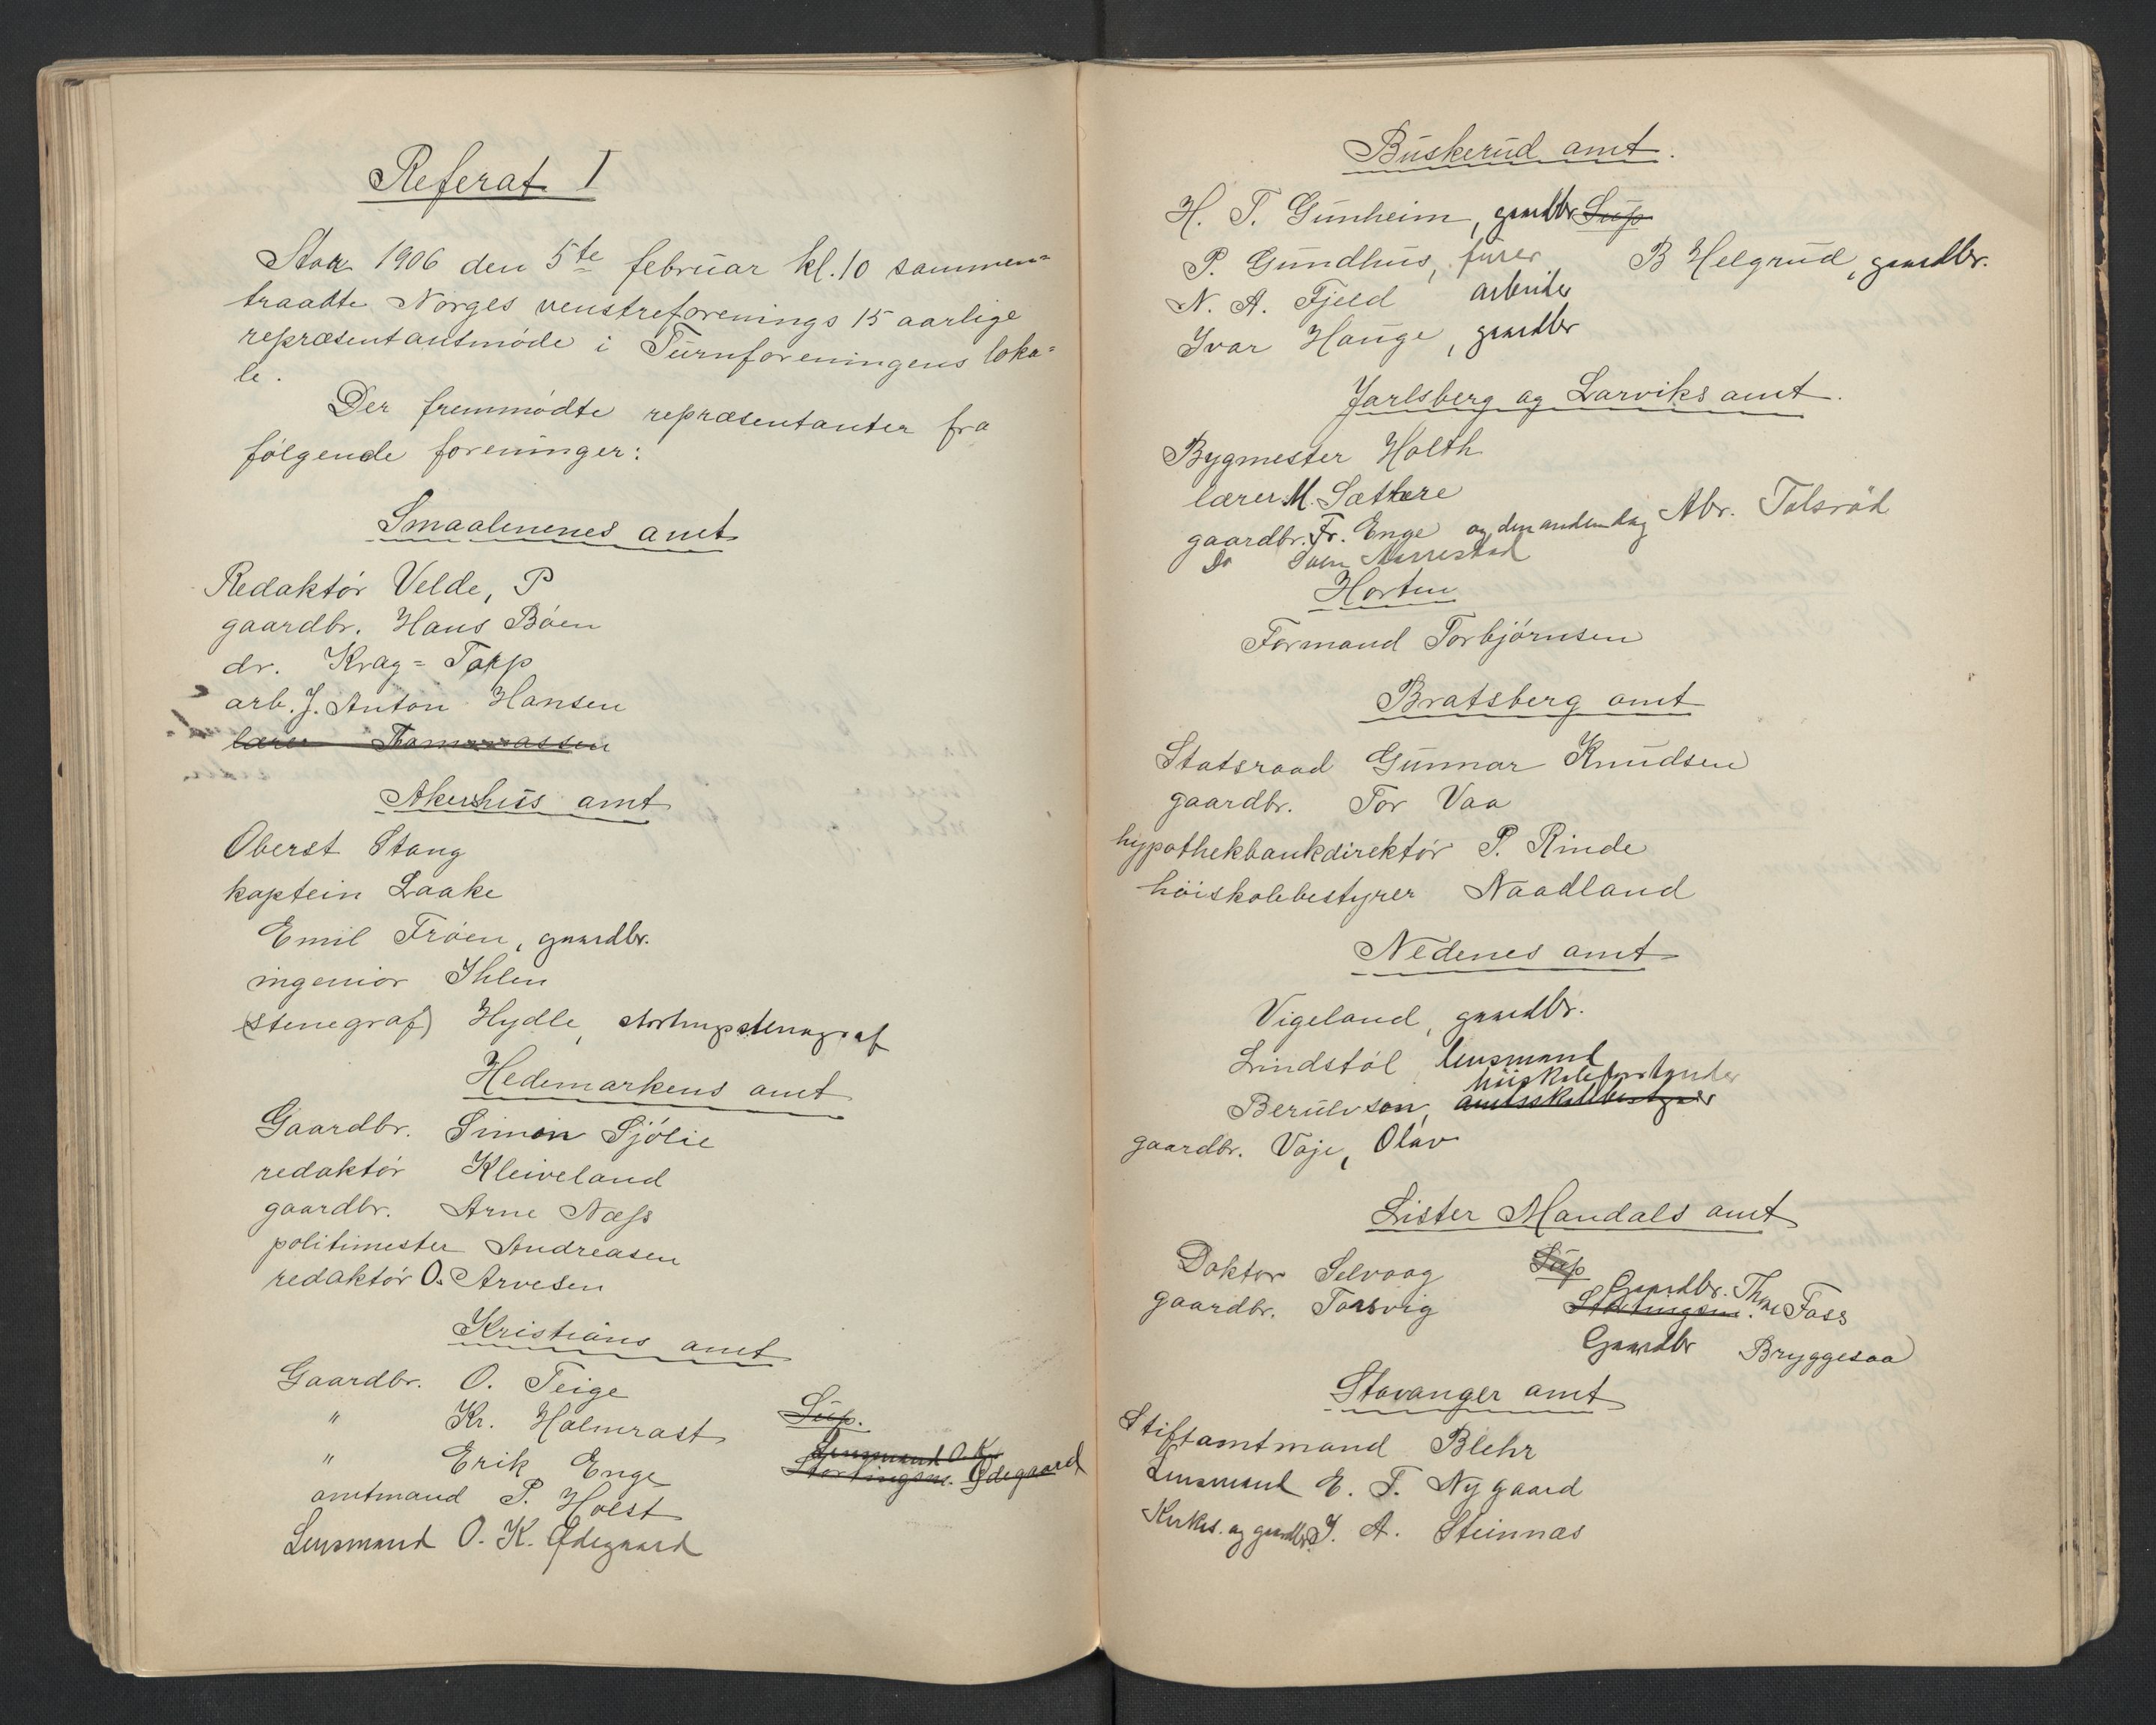 Referat I
Aar 1906 den 5te februar kl. 10 sammen=
traadte Norges venstreforenings 15 aarlige
repræsentantsmøde i Turnforeningens loka=
le.
Der fremmødte repræsentanter fra
følgende foreninger:
Smaalenenes amt
Redaktør Velde, P
gaardbr. Hans Bøen
dr. Krag=Torp
arb. J. Anton Hansen
lærer Thommassen
Akershus amt
Oberst Stang
kaptein Laake
Emil Frøen, gaardbr.
ingeniør Ihlen
(stenegraf) Hydle, stortingsstenograf
Hedemarkens amt
Gaardbr. Simon Sjølie
redaktør Kleiveland
gaardbr. Arne Næss
politimester Andreasen
redaktør O. Arvesen
Kristians amt
Gaardbr. O. Teige
" Kr. Holmrast Sup.
" Erik Enge Lensmand O. K.
Stortingsm. Ødegaard
amtmand P. Holst
Lensmand O. K. Ødegaard
Buskerud amt.
H. T. Gunheim, gaardbr Sup
P. Gundhus, furer B Helgrud, gaardbr.
N. A. Fjeld arbeider
Ivar Hauge, gaardbr
Jarlsberg og Larviks amt.
Bygmester Holth
lærer M. Sættere
gaardbr. Fr. Enge og den anden dag Abr. Tolsrød
Do Sven Aarrestad
Horten
Formand Torbjørnsen
Bratsberg amt
Statsraad Gunnar Knudsen
gaardbr. Tor Vaa
hypothekbankdirektør P. Rinde
høiskolebestyrer Naadland
Nedenes amt
Vigeland, gaardbr.
Lindstøl lensmand
høiskolebestyrer
Berulvson, amtsskolebestyrer
gaardbr. Vaje, Olav
Lister Mandals amt
Doktor Selvaag Sup
Gaardbr. Thore
gaardbr. Tarsvig Stortingsm. Foss
Gaardbr Bryggesaa
Stavanger amt
Stiftamtmand Blehr
Lensmand E. T. Nygaard
Kirkes. og gaardbr. J. A. Steinnas